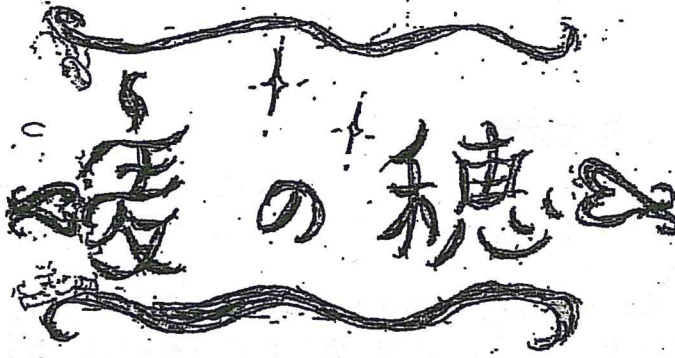 麦の穂